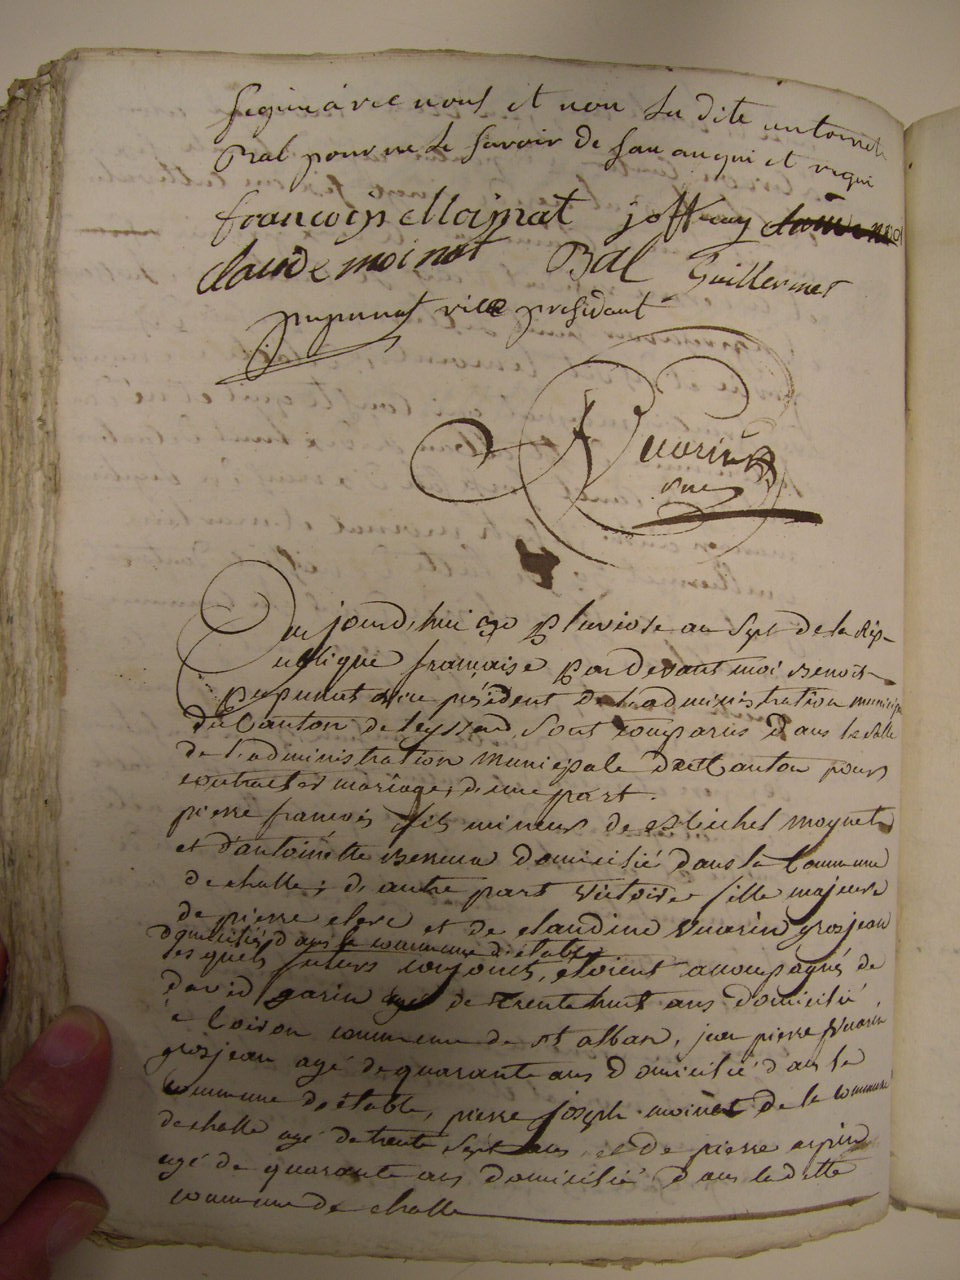 signé avec nous et non la dite antoinette
Bal pour ne le savoir de sau anqui et requi
francois Moinat joffray
claude moinat Bal Guillermet
pupunat vice président
Vuarin
Aujourd'hui 30 pluviose an sept de la Rép-
ublique francaise par devant moi Benoit
pupunat vice président de l'administration municip
du Canton de leyssaud, sont comparus dans la salle
de l'administration municipale du Canton pour
contracter mariage, d'une part.
pierre francois fils mineur de Michel moynet
et d'antoinette domicilié dans la Commune
de challe; d'autre part victoire fille majeure
de pierre clerc et de claudine Vuarin grosjean
domiciliés dans la commune d'étable
lesquels futurs conjoints, étoient acompagnés de
david garin agé de trente huit ans domicilié
à loison commune de st alban, jean pierre Vuarin
grosjean agé de quarante ans domicilié dans la
commune d'étable, pierre joseph moinet de la commune
de challe agé de trente sept ans, et de pierre arpin
agé de quarante ans domicilié dans la ditte
commune de challe